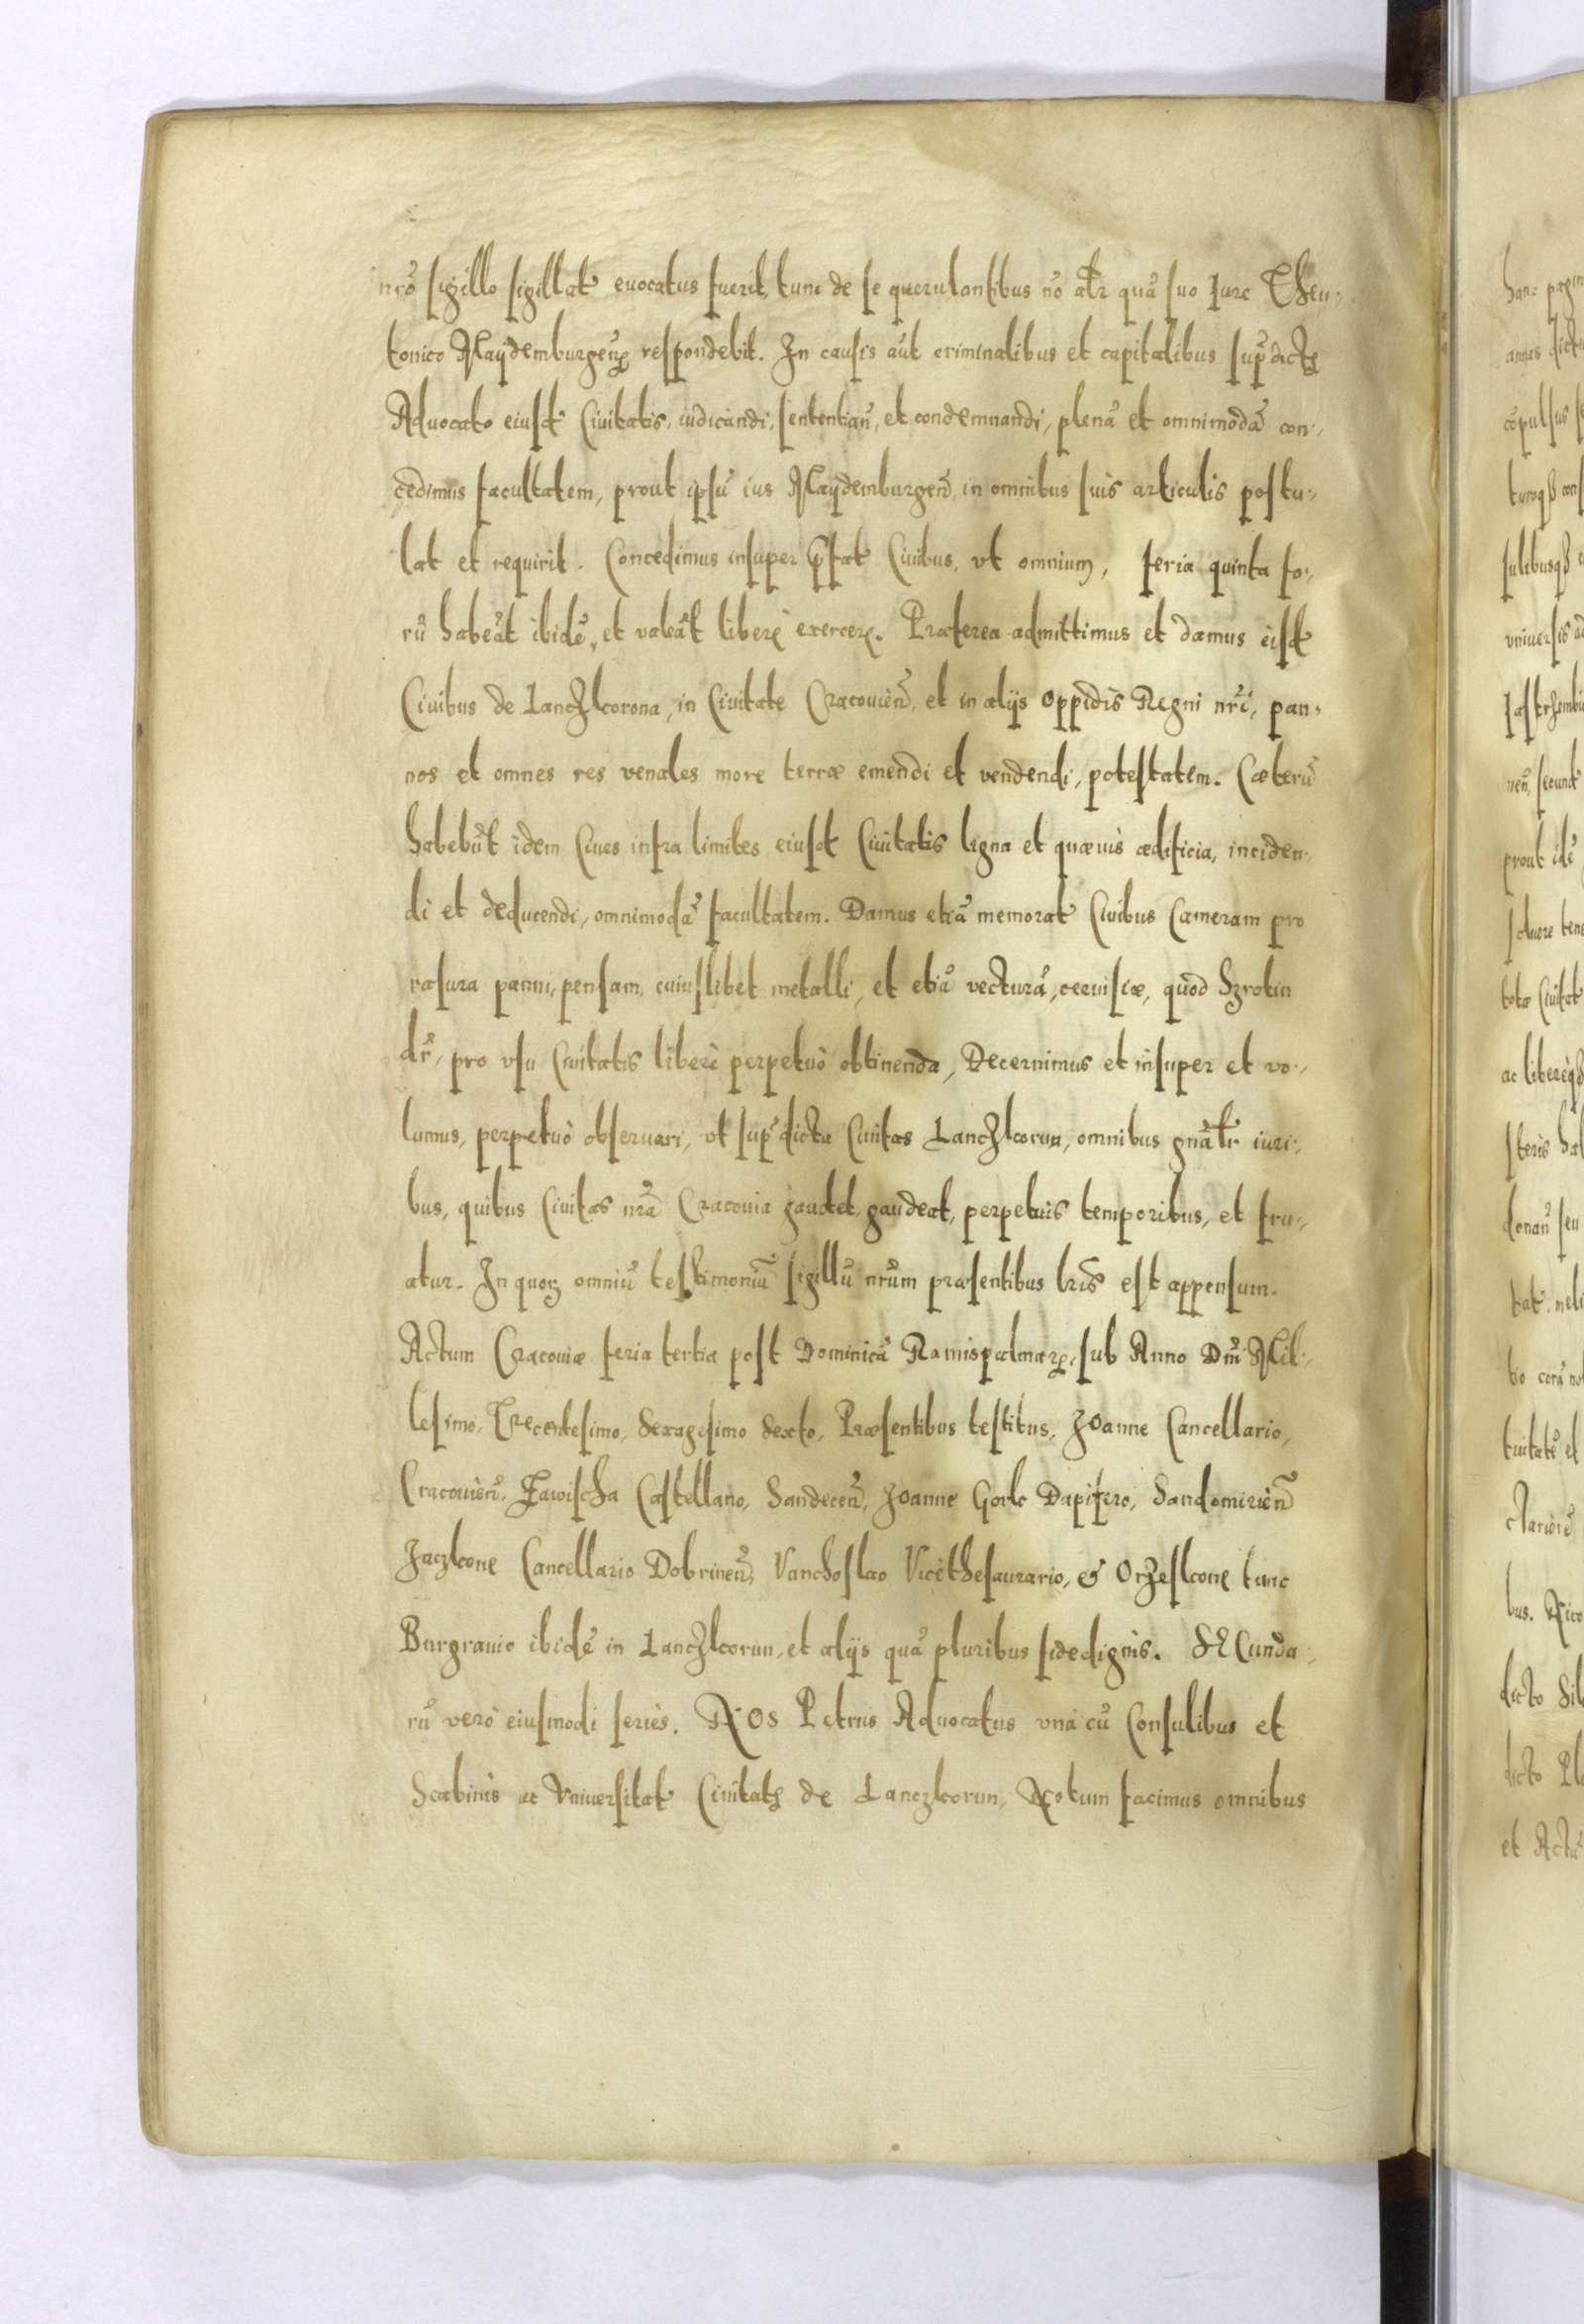 nrõ sigillo sigillat euocatus fuerit, tunc de se querulantibus nõ alr̃ quã suo Iure Theu-
tonico Maydemburgeñ respondebit. In causis aũt criminalibus et capitalibus sup̃dicto
Aduocato eiusd Ciuitatis, iudicandi, sententiañ, et condemnandi, plenã et omnimodã con-
cedimus facultatem, prout ipsũ ius Maydemburgeñ, in omnibus suis articulis postu-
lat et requirit. Concedimus insuper p̃fat Ciuibus, vt omnium, feria quinta fo-
rũ habeãt ibidẽ, et valeãt liberè exercere. Præterea admittimus et damus eisd
Ciuibus de Lanczkorona, in Ciuitate Cracouieñ, et in alijs oppidis Regni nr̃i, pan-
nos et omnes res venales more terræ emendi et vendendi, potestatem. Cæterũ
habebũt idem Ciues infra limites eiusd Ciuitatis ligna et quæuis ædificia, inciden-
di et deducendi, omnimodã facultatem. Damus etiã memorat Ciuibus Cameram pro
rasura panni, pensam cuiuslibet metalli, et etiã vecturã, ceruisiæ, quod Szrotin
dr̃, pro vsu Ciuitatis liberè perpetuò obtinenda, Decernimus et insuper et vo-
lumus, perpetuò obseruari, vt sup̃dicta Ciuitas Lanczkorun, omnibus gnãlr iuri-
bus, quibus Ciuitas nr̃a Cracouia gaudet, gaudeat, perpetuis temporibus, et fru-
atur. In quoꝝ omniũ testimoniũ sigillũ nr̃um præsentibus lr̃is est appensum.
Actum Cracouiæ feria tertia post Dominicã Ramispalmaꝝ, sub Anno Dñi Mil-
lesimo, Trecentesimo, Sexagesimo Sexto, Præsentibus testibus, Joanne Cancellario,
Cracouieñ, Zawischa Castellano, Sandeceñ, Joanne Gork Dapifero, Sandomirieñ
Jaczkone Cancellario Dobrineñ, Vanchoslao Vicethesaurario, & Orzeskone tunc
Burgrauio ibidẽ in Lanczkorun, et alijs quã pluribus fidedignis. SECunda-
rũ verò eiusmodi series. NOS Petrus Aduocatus vnà cũ Consulibus et
Scabinis ac Vniuersitat Ciuitatis de Lanczkorun, Notum facimus omnibus